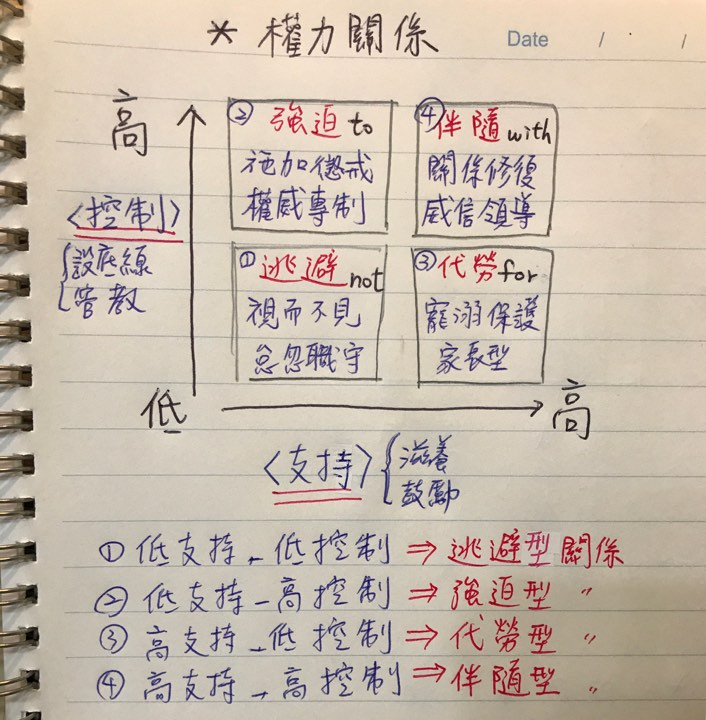 * 權力關係
Date / / /
高
② 強迫 to
施加懲戒
權威專制
④ 伴隨 with
關係修復
威信領導
<控制>
設底線
管教
① 逃避 not
視而不見
怠忽職守
③ 代勞 for
寵溺保護
家長型
低
高
<支持>
滋養
鼓勵
① 低支持-低控制⇒逃避型關係
② 低支持-高控制⇒強迫型 〃
③ 高支持-低控制⇒代勞型 〃
④ 高支持-高控制⇒伴隨型 〃